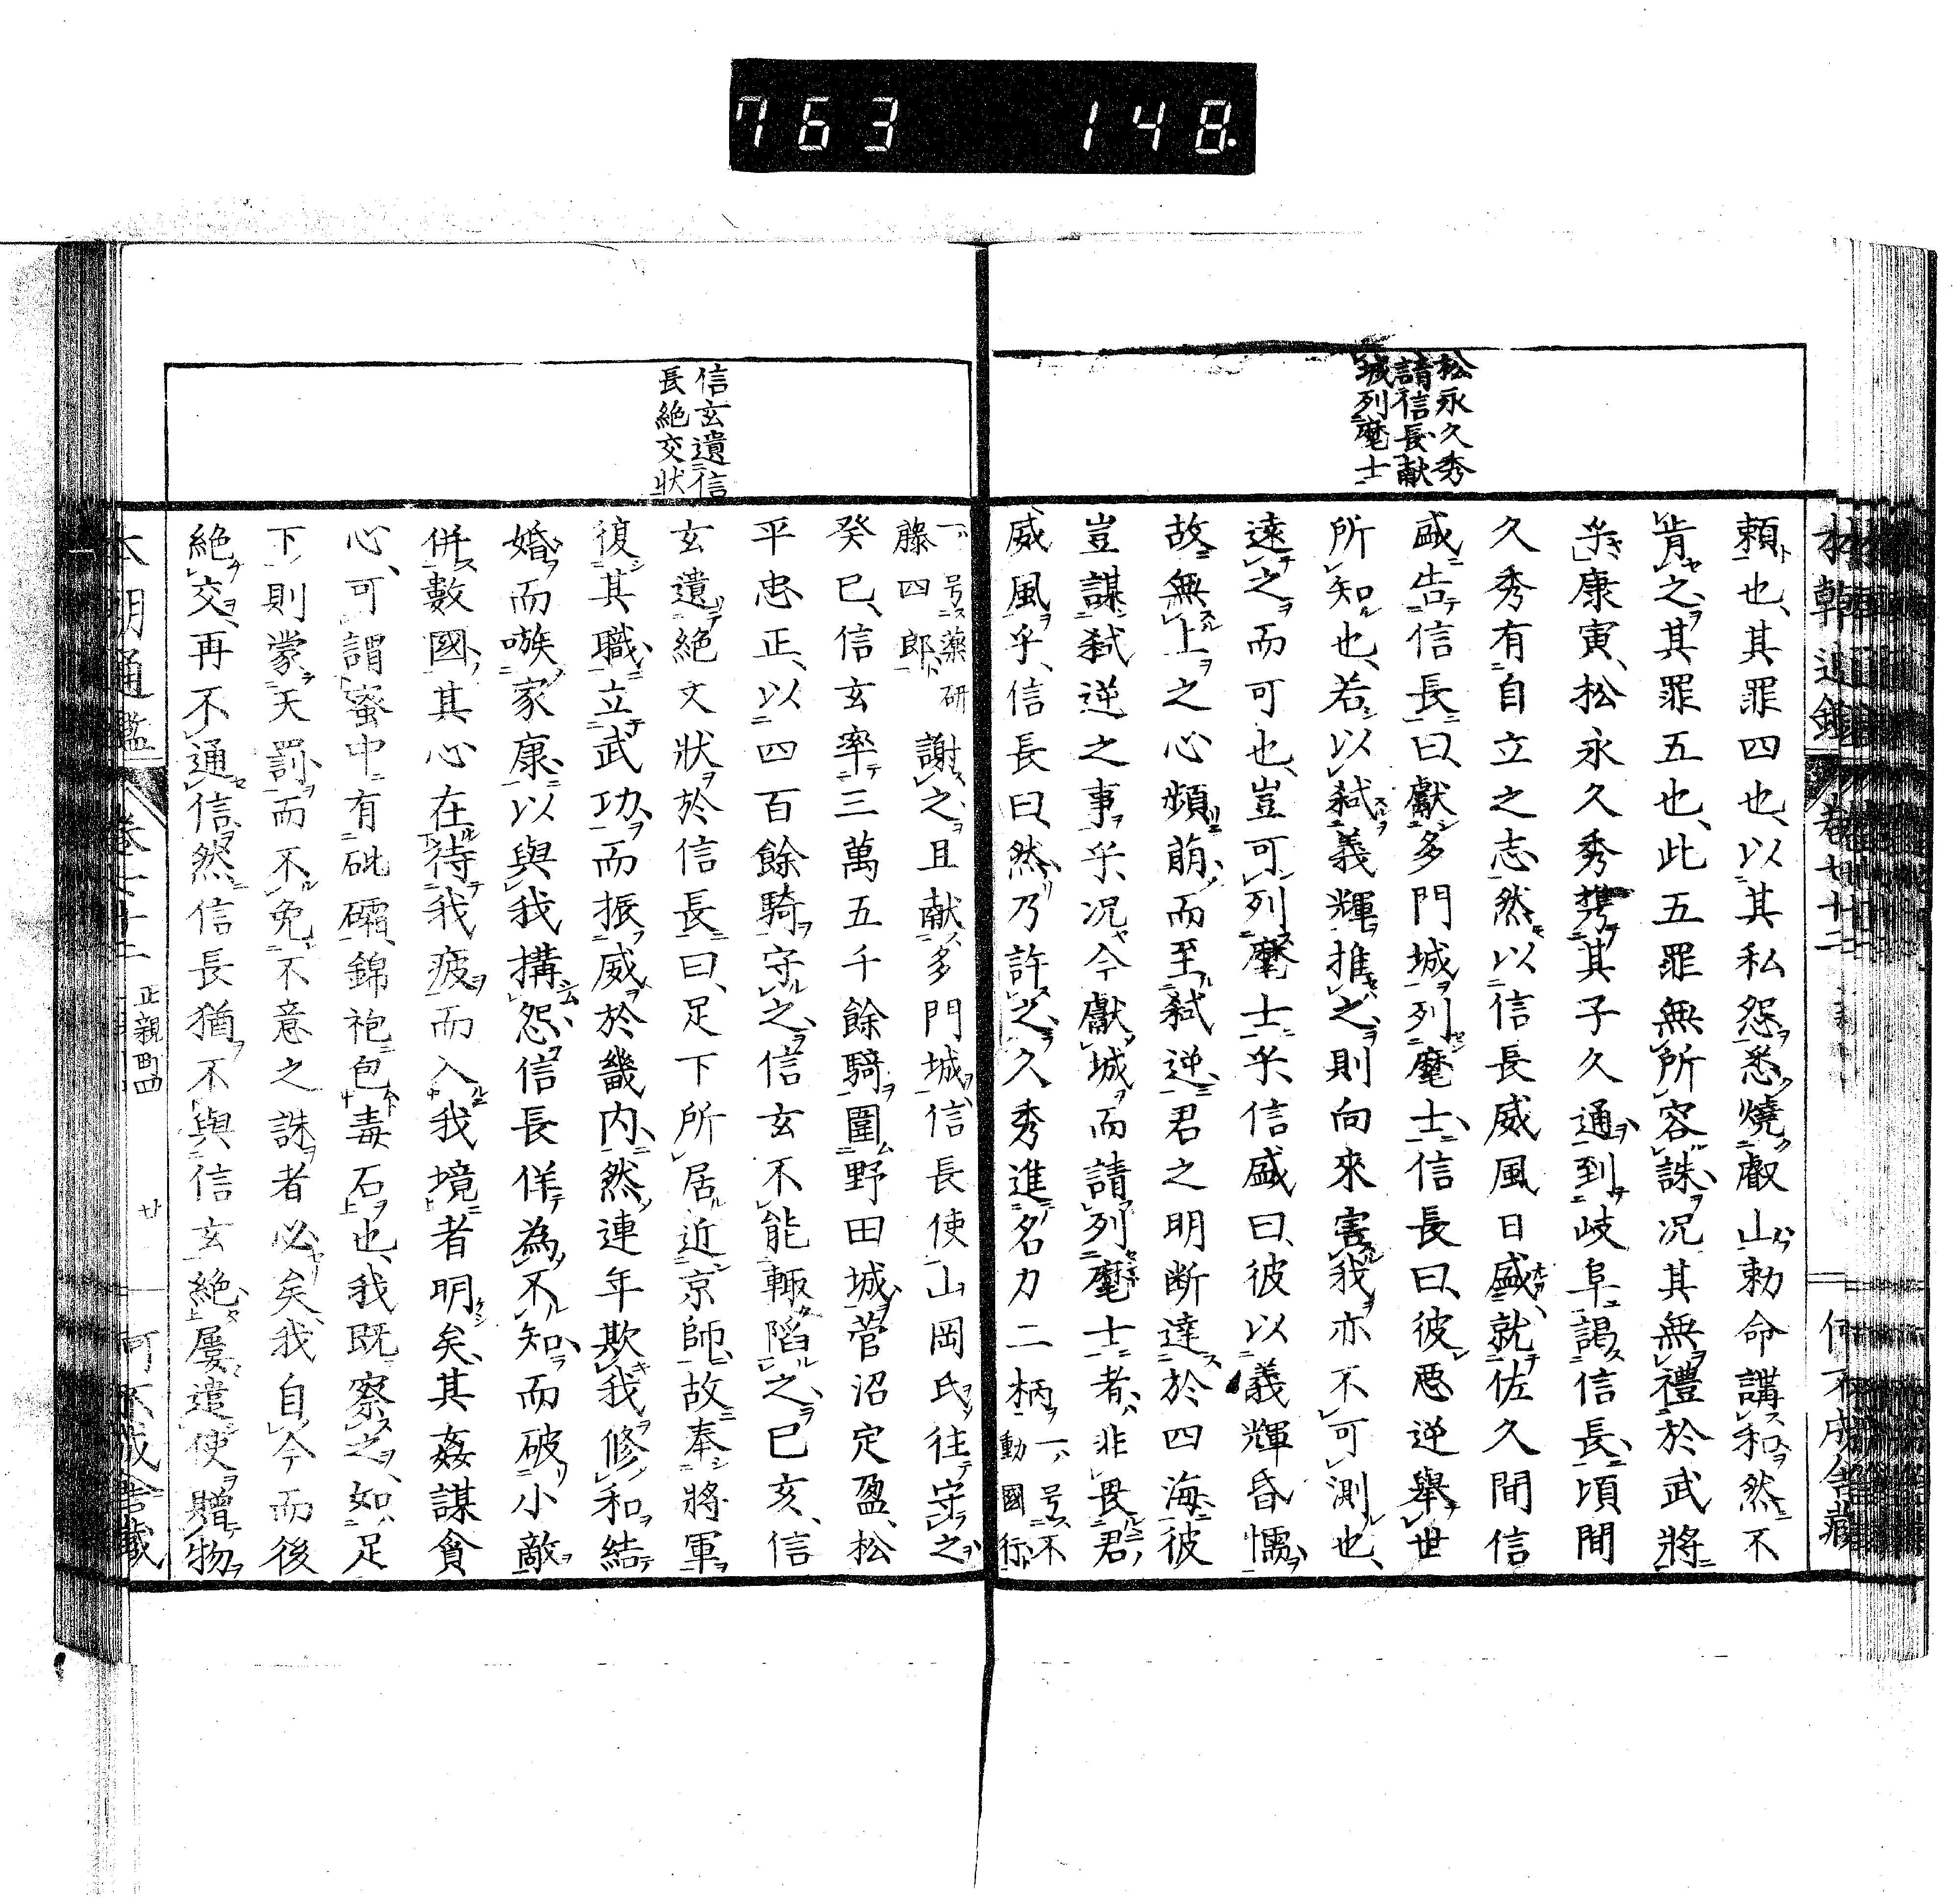 763 148.
松永久秀
請信長献
城列麾士
頼也、其罪四也、以其私怨悉燒叡山勅命講和然不
肯之、其罪五也、此五罪無所容誅、况其無禮於武將
乎、康寅、松永久秀携其子久通到岐阜謁信長、頃間
久秀有自立之志、然以信長威風日盛、就佐久間信
盛告信長曰、獻多門城列麾士、信長曰、彼惡逆舉世
所知也、若以弒義輝推之、則向來害我亦不可測也、
遠之而可也、豈可列麾士乎、信盛曰、彼以義輝昏懦
故無上之心頻萠、而至弒逆、君之明断達於四海、彼
豈謀弒逆之事乎、况今獻城而請列麾士者、非畏君
威風乎、信長曰、然乃許之、久秀進名刀二柄一号不動國行
一号薬研藤四郎謝之、且献多門城、信長使山岡氏往守之、
癸巳、信玄率三萬五千餘騎圍野田城、菅沼定盈、松
平忠正、以四百餘騎守之、信玄不能輙陷之、已亥、信
玄遺絶文狀於信長曰、足下所居近京師、故奉將軍
復其職、立武功而振威於畿内、然連年欺我修和結
婚而嗾家康、以與我搆怨、信長佯為不知而破小敵
併數國、其心在待我疲而入我境者明矣、其姦謀貪
心、可謂蜜中有砒礵、錦袍包毒石也、我既察之、如足
下則蒙天罰而不免不意之誅者必矣、我自今而後
絶交、再不通信、然信長猶不與信玄絶、屢遣使贈物
信玄遺信
長絶交狀
正親町四
廿